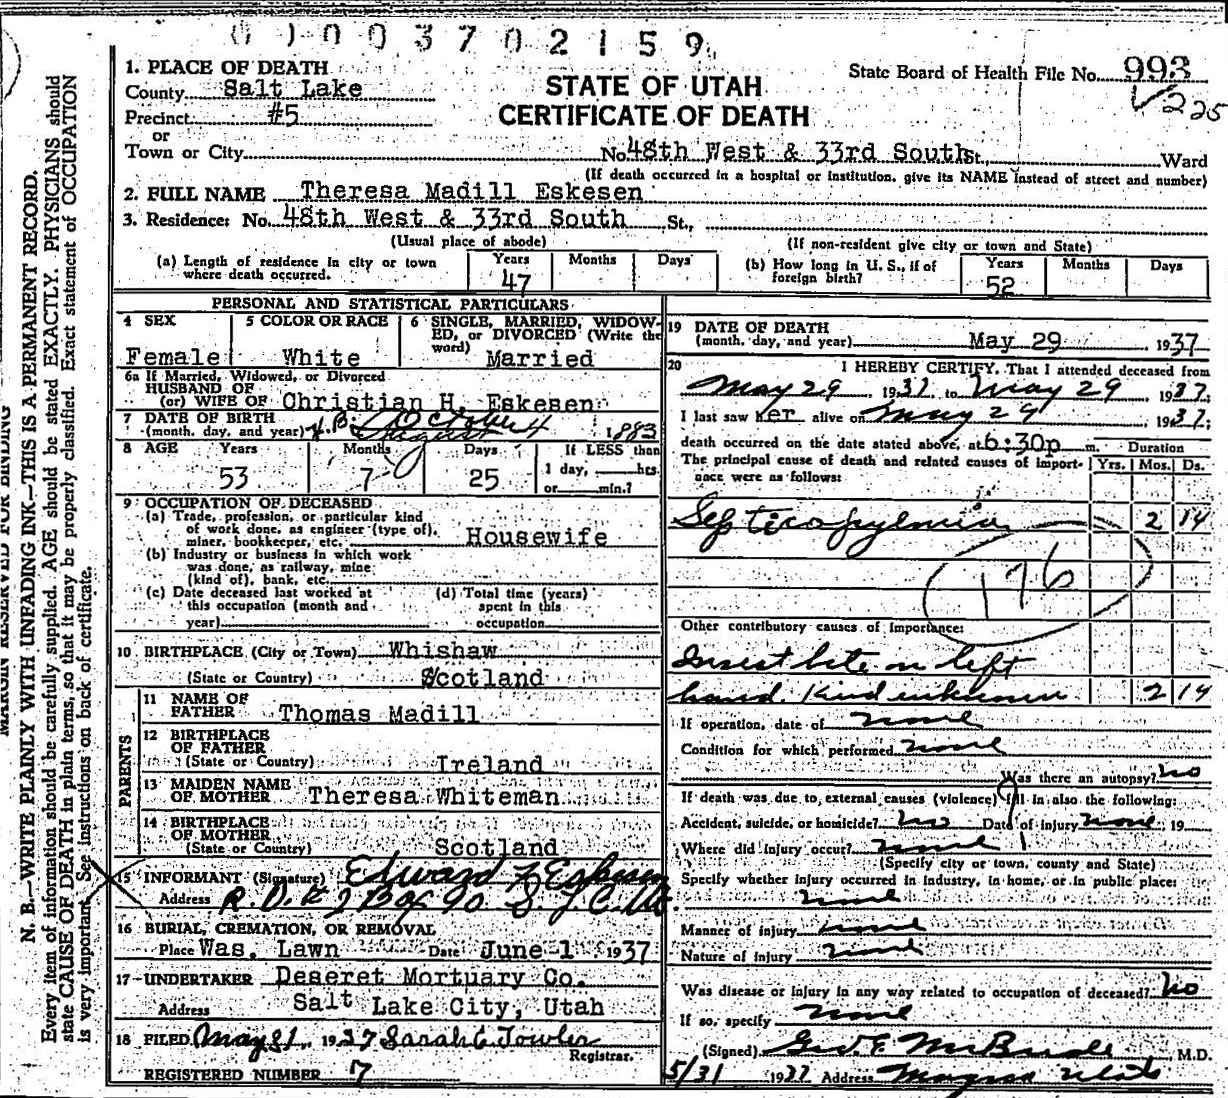 0 1 0 0 3 7 0 2 1 5 9
1. PLACE OF DEATH
County Salt Lake
Precinct #5
or
Town or City
STATE OF UTAH
CERTIFICATE OF DEATH
State Board of Health File No. 993
225
No. 48th West & 33rd South St., Ward
(If death occurred in a hospital or institution, give its NAME instead of street and number)
2. FULL NAME Theresa Madill Eskesen
3. Residence: No. 48th West & 33rd South St.,
(Usual place of abode)
(If non-resident give city or town and State)
(a) Length of residence in city or town where death occurred. Years 47 Months Days
(b) How long in U. S., if of foreign birth? Years 52 Months Days
PERSONAL AND STATISTICAL PARTICULARS
4 SEX Female
5 COLOR OR RACE White
6 SINGLE, MARRIED, WIDOWED, or DIVORCED (Write the word) Married
6a If Married, Widowed, or Divorced
HUSBAND OF
(or) WIFE OF Christian H. Eskesen
7 DATE OF BIRTH
(month, day, and year) October 4 1883
August
8 AGE Years 53 Months 7 Days 25 If LESS than
1 day, hrs.
or min.?
9 OCCUPATION OF DECEASED
(a) Trade, profession, or particular kind
of work done, as engineer (type of),
miner, bookkeeper, etc. Housewife
(b) Industry or business in which work
was done, as railway, mine
(kind of), bank, etc.
(c) Date deceased last worked at
this occupation (month and
year)
(d) Total time (years)
spent in this
occupation
10 BIRTHPLACE (City or Town) Whishaw
(State or Country) Scotland
PARENTS
11 NAME OF
FATHER Thomas Madill
12 BIRTHPLACE
OF FATHER
(State or Country) Ireland
13 MAIDEN NAME
OF MOTHER Theresa Whiteman
14 BIRTHPLACE
OF MOTHER
(State or Country) Scotland
15 INFORMANT (Signature) Edward F Eskesen
Address R.D. # 2 Box 90 S. L. C. Ut.
16 BURIAL, CREMATION, OR REMOVAL
Place Was. Lawn Date June 1 1937
17 UNDERTAKER Deseret Mortuary Co.
Address Salt Lake City, Utah
18 FILED May 31 1937 Sarah E Towler
Registrar.
REGISTERED NUMBER 7
19 DATE OF DEATH
(month, day, and year) May 29 1937
20 I HEREBY CERTIFY, That I attended deceased from
May 29 1937 to May 29 1937;
I last saw her alive on May 29 1937;
death occurred on the date stated above, at 6:30p m. Duration
The principal cause of death and related causes of importance were as follows: Yrs. Mos. Ds.
Septicopyemia 2 14
176
Other contributory causes of importance:
Insect bite on left
hand. Kind unknown 2 14
If operation, date of none
Condition for which performed none
Was there an autopsy? no
If death was due to external causes (violence) fill in also the following:
Accident, suicide, or homicide? no Date of injury none 19
Where did injury occur? none
(Specify city or town, county and State)
Specify whether injury occurred in industry, in home, or in public place:
none
Manner of injury none
Nature of injury none
Was disease or injury in any way related to occupation of deceased? no
If so, specify none
(Signed) Geo. E. McBride M.D.
5/31 1937 Address Magna Utah
MARGIN RESERVED FOR BINDING
N. B.—WRITE PLAINLY WITH UNFADING INK—THIS IS A PERMANENT RECORD.
Every item of information should be carefully supplied. AGE should be stated EXACTLY. PHYSICIANS should
state CAUSE OF DEATH in plain terms, so that it may be properly classified. Exact statement of OCCUPATION
is very important. See instructions on back of certificate.